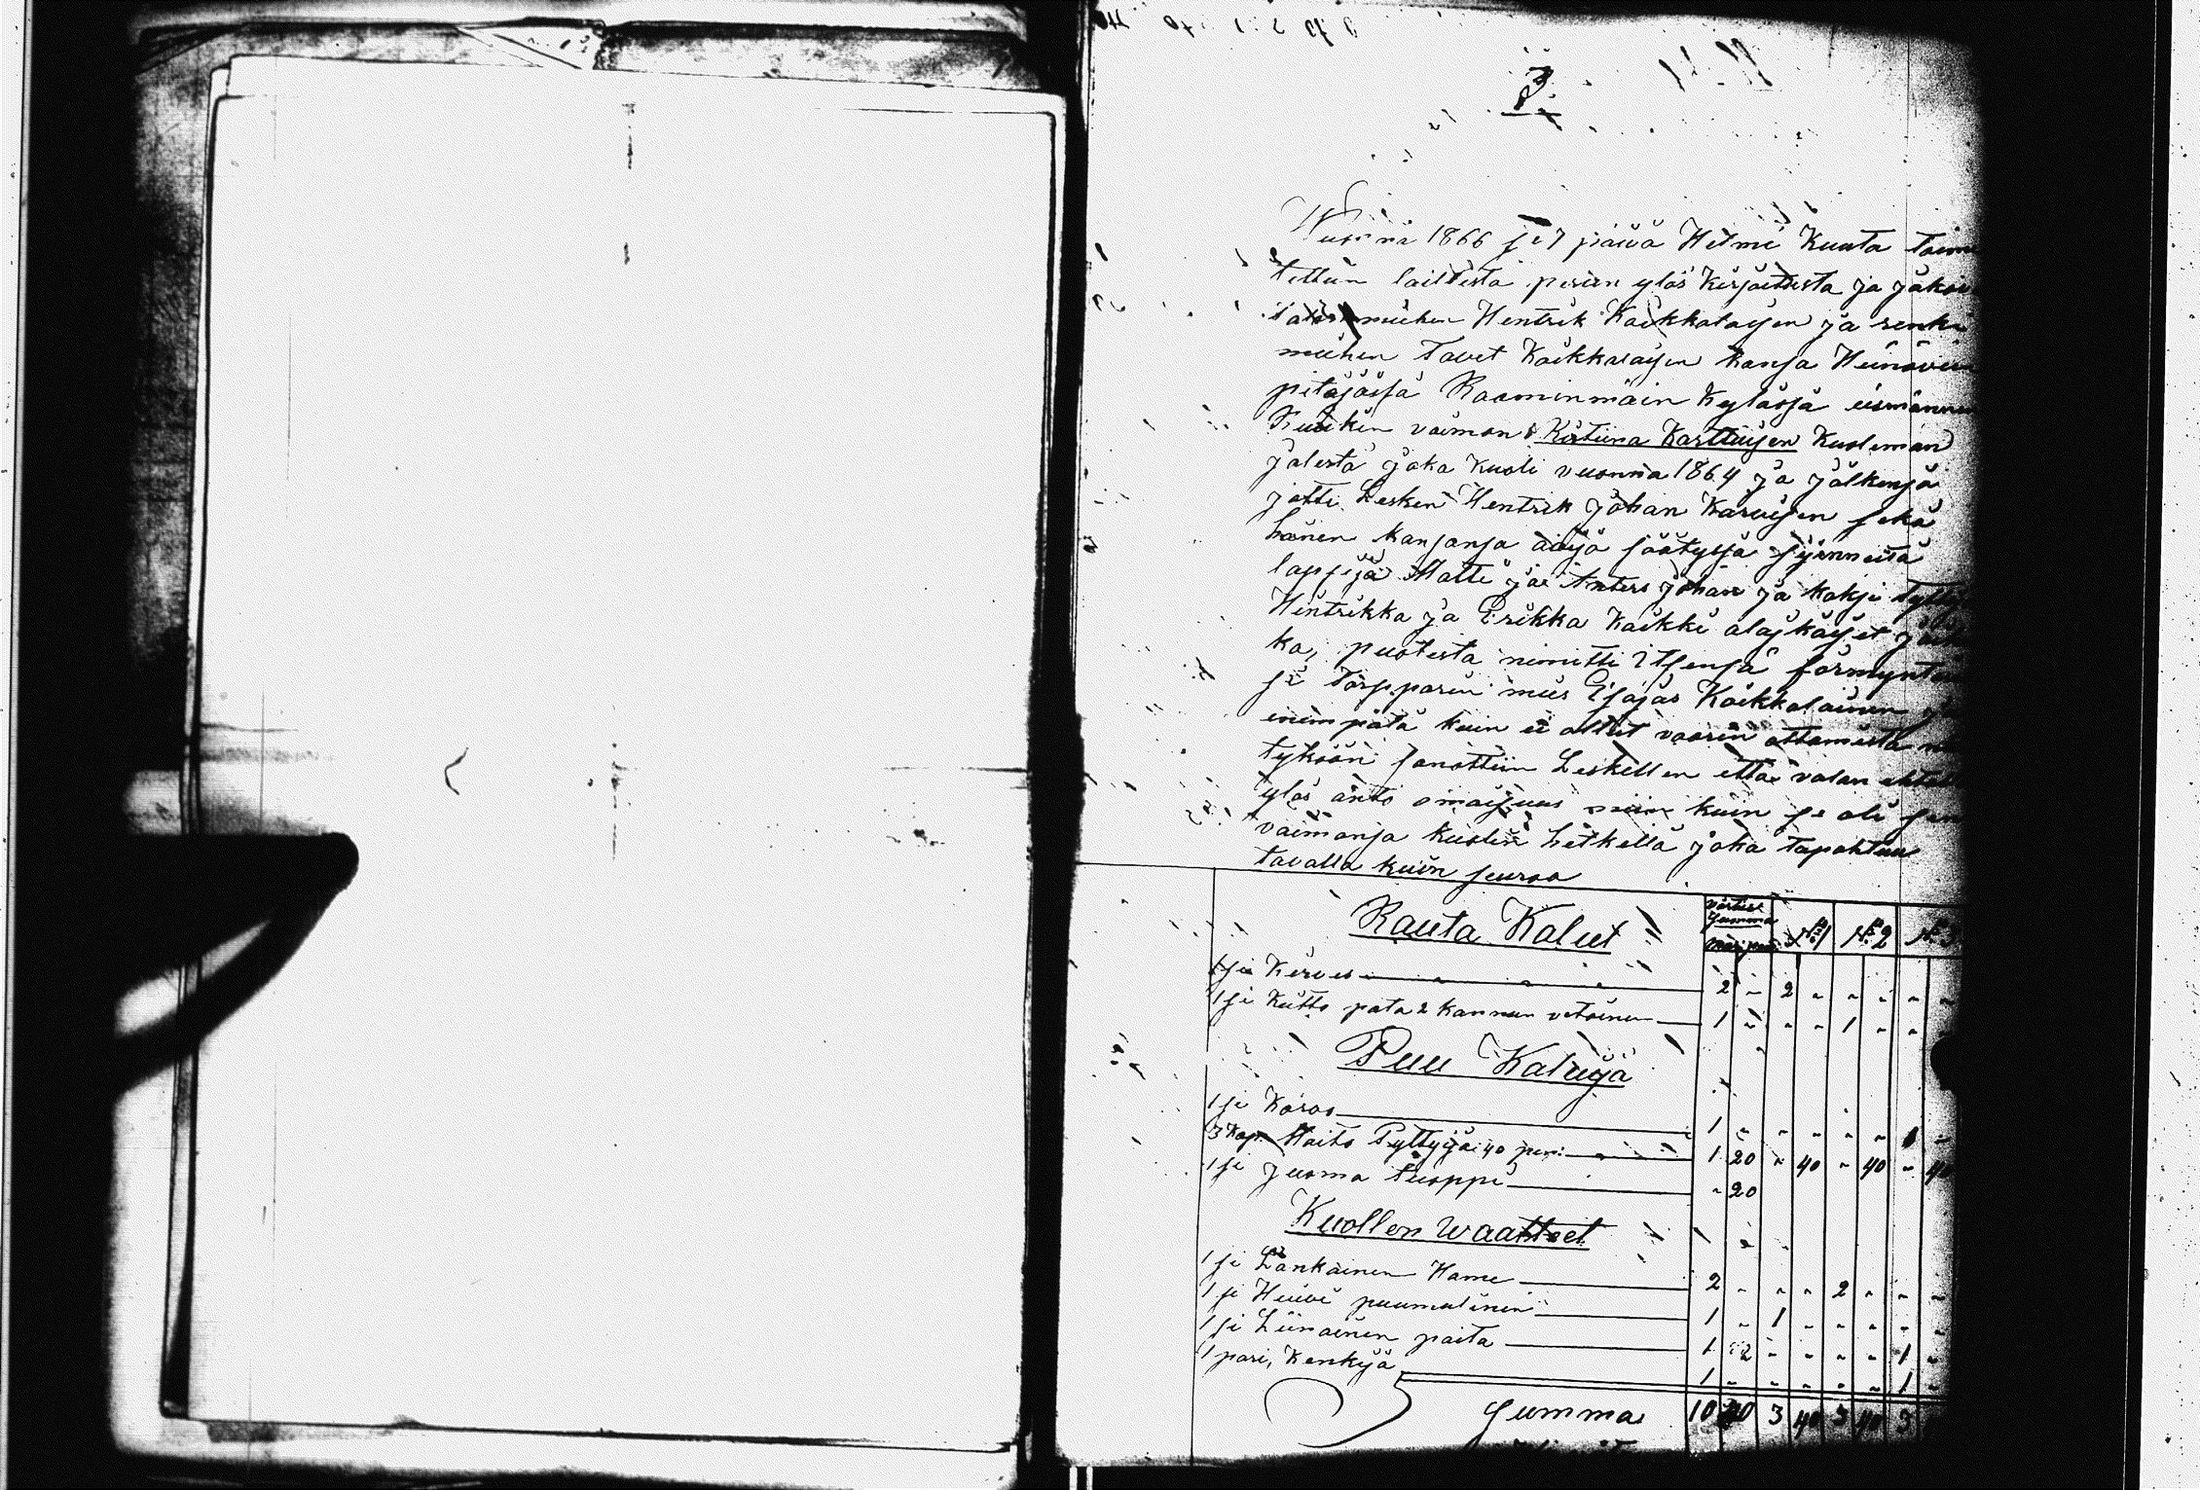 3
Wuonna 1866 se 7 päivä Helmi Kuuta toim
tettiin laillista perun ylös kirjoitusta ja jakoa
miehen Hentrik Kaikkalaisen ja renki
miehen Tavet Kaikkalaisen kansa Heinäve
pitäjässä Raaminmäin Kylässä
vaimon Kristiina Karttuisen Kuoleman
jälestä joka Kuoli vuonna 1864 ja jälkensä
jätti Lesken Hentrik Johan Karvisen sekä
hänen kansansa säätyssä syänneitä
lapsija Matti ja Anters Johan ja kaksi tytt
Hentrikka ja Erikka Kaikki alaskäiset
ka, puolesta nimitti itsensä förmynt
si Torpparin mies Esajas Kaikkalainen
enempätä kuin ei ollut vaarin ottamista
tyköön sanottiin Leskellen että valan
ylös anto omaisuus niin kuin se oli
vaimonsa kuolin hetkellä joka tapahtuu
tavalla kuin seuraa
Rauta Kalut
Summa
No 1 No 2 No 3
1 si Kirves 2 - 2 - - - - -
1 si Kutto pata 2 kannun vetoinen 1 - - - 1 - - -
Puu Kaluja
1 si Korvo 1 - - - - - 1 -
3 Kap. Maito Pyttyjä 40 pen: 1 20 - 40 - 40 - 40
1 si Juoma tuoppi - 20
Kuollen Waatteet
1 si Lankainen Hame 2 - - - 2 - - -
1 si Huivi puumulinen 1 - 1 - - - - -
1 si Liinainen paita 1 - - - - - 1 -
1 pari, Kenkijä 1 - - - - - 1 -
Summa 10 40 3 40 3 40 3